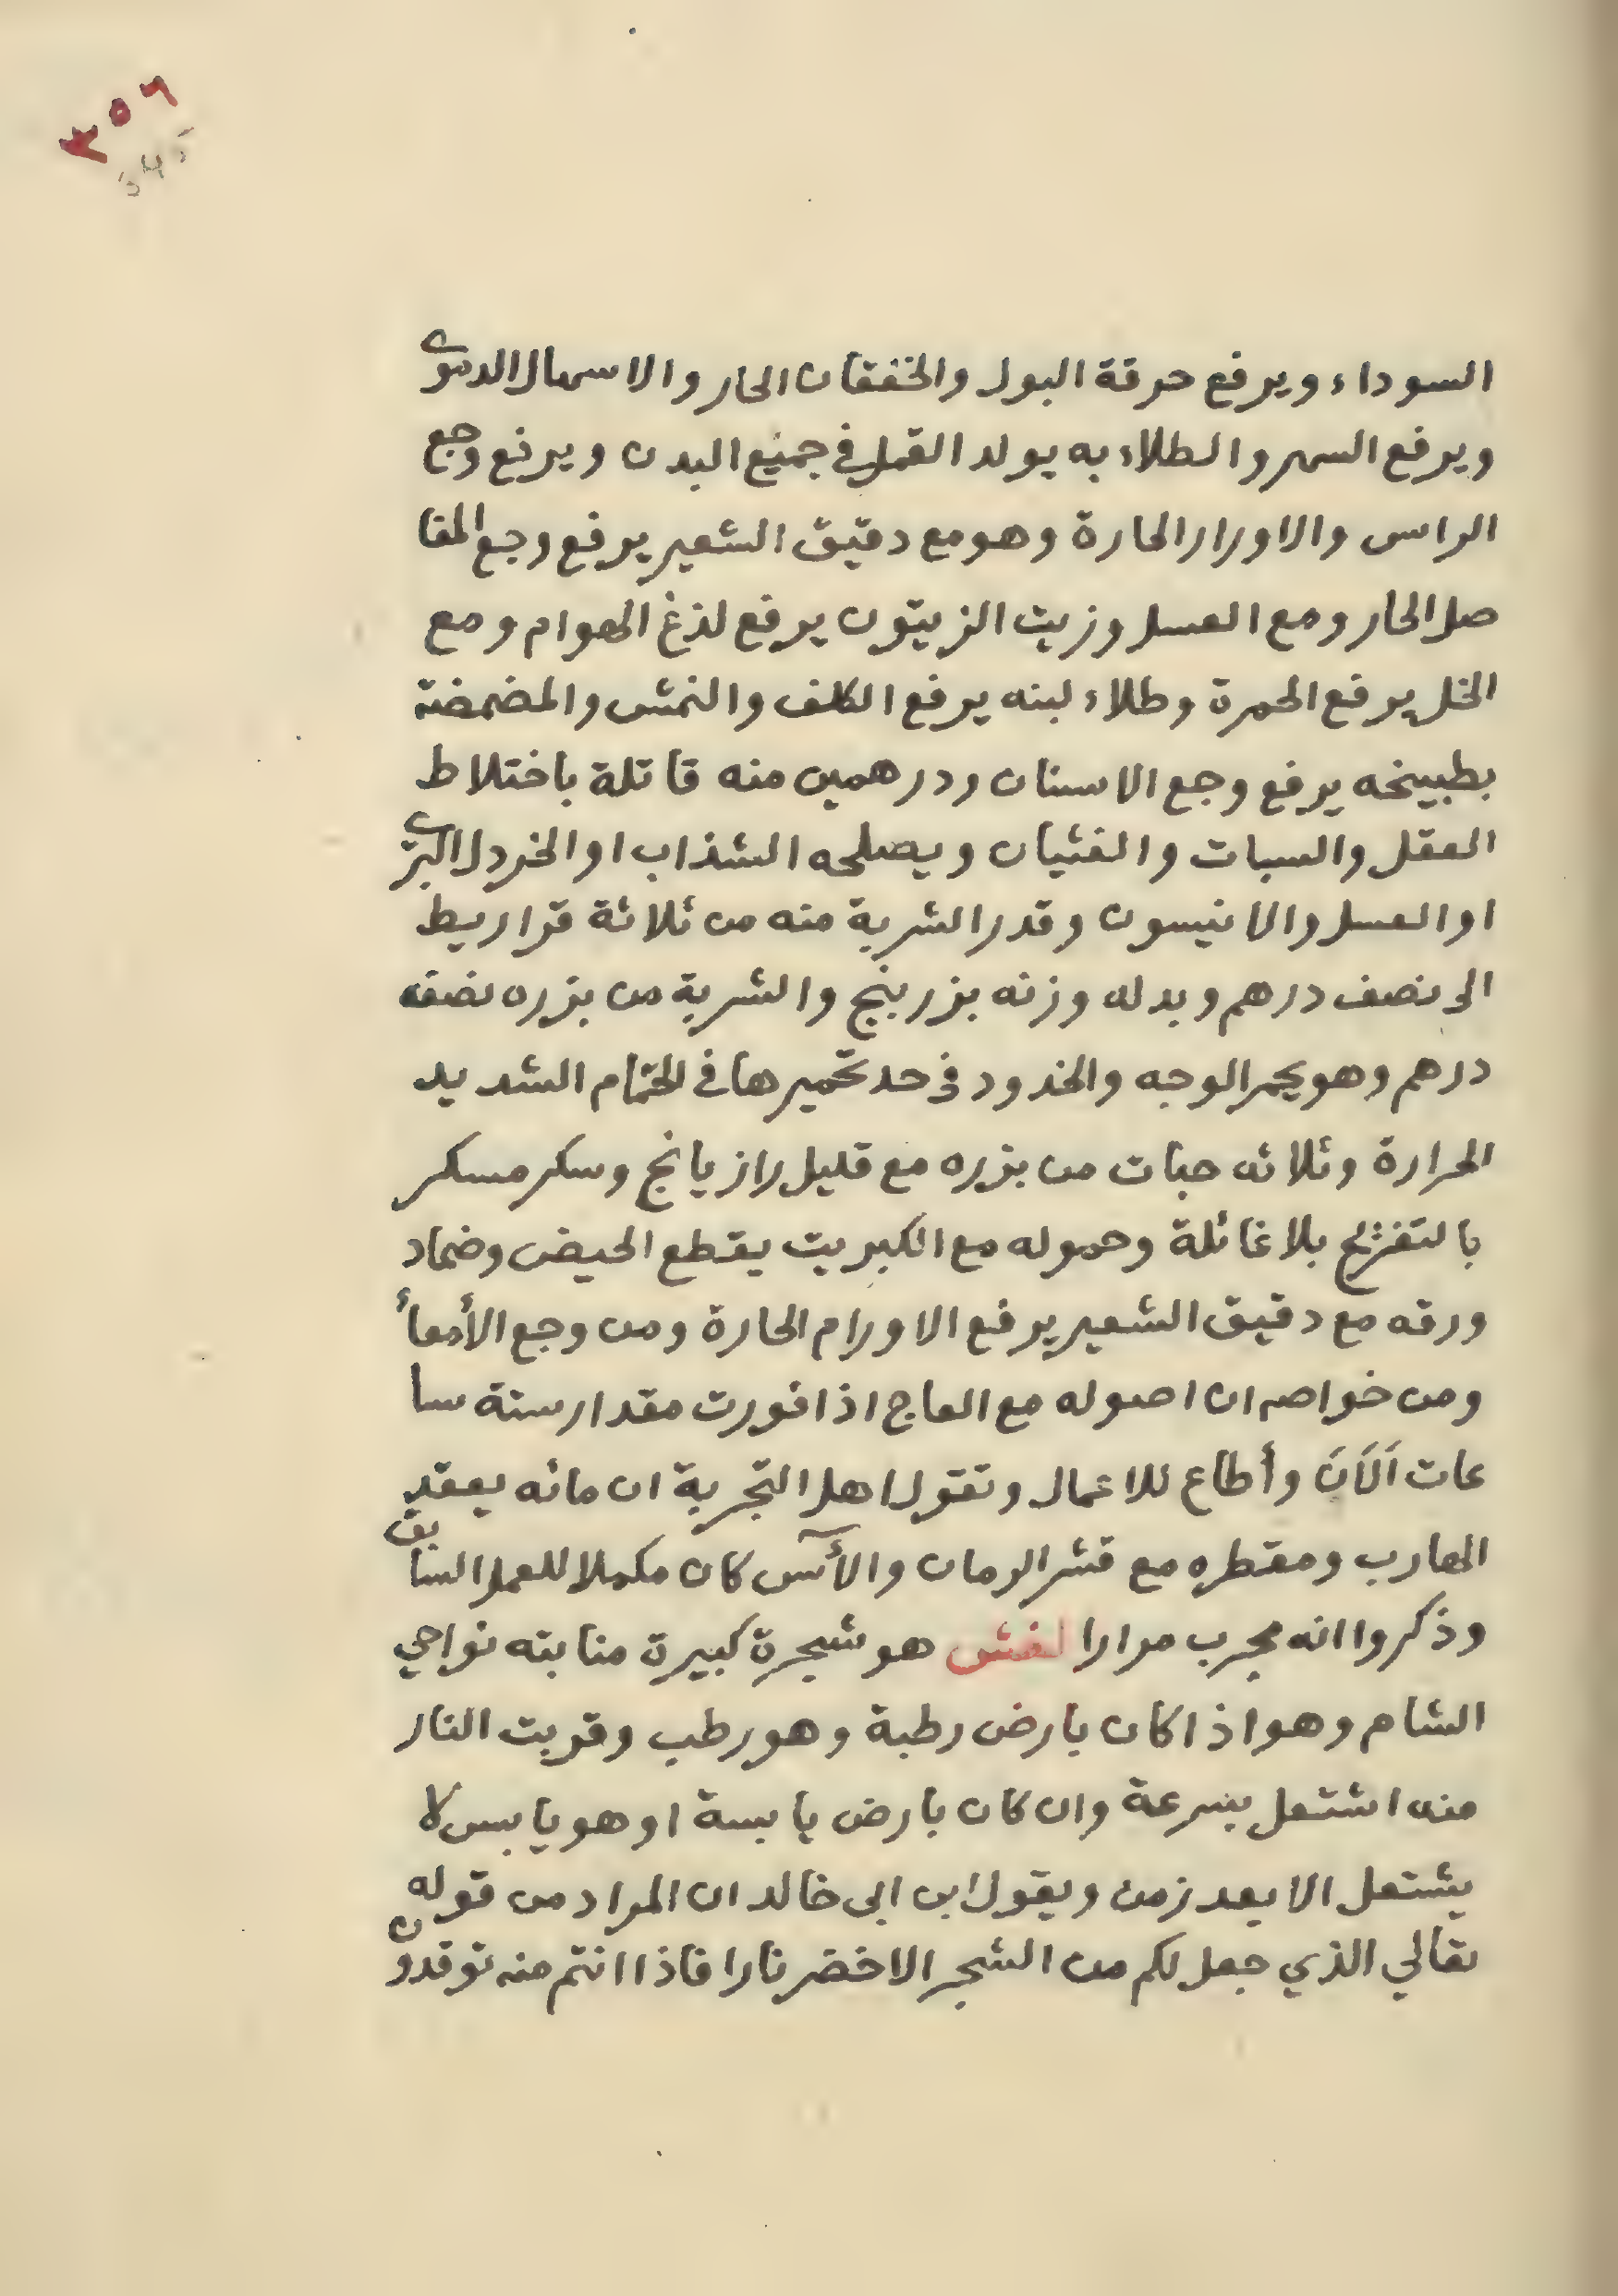 ٣٥٦
السوداء ويرفع حرقة البول والخفقان الحار والاسهال الدموى
ويرفع السهر والطلاء به يولد القمل في جميع البدن ويرفع وجع
الراس والاورار الحارة وهو مع دقيق الشعير يرفع وجع المفا
صل الحار ومع العسل وزيت الزيتون يرفع لذغ الهوام ومع
الخل يرفع الحمرة وطلاء لبنه يرفع الكلف والنمش والمضمضة
بطبيخه يرفع وجع الاسنان ودرهمين منه قاتلة باختلاط
العقل والسبات والغثيان ويصلحه الشذاب او الخردل البرّى
او العسل والانيسون وقدر الشربة منه من ثلاثة قراريط
الى نصف درهم وبدله وزنه بزر بنج والشربة من بزره نصف
درهم وهو يحمر الوجه والخدود في حد تحميرها في الحمّام الشديد
الحرارة وثلاثه حبات من بزره مع قليل رازيانج وسكر مسكر
بالتفريح بلا غائلة وحموله مع الكبريت يقطع الحيض وضماد
ورقه مع دقيق الشعير يرفع الاورام الحارة ومن وجع الأمعاأ
ومن خواصه ان اصوله مع العاج اذا فورت مقدار ستة سا
عات اَلَانَ وأطاع للاعمال وتقول اهل التجربة ان مائه يعقد
الهارب ومقطره مع قشر الرمان والأس كان مكملا للعمل السابق
وذكروا انه مجرب مرارا لغش هو شجرة كبيرة منابته نواحي
الشام وهو اذا كان بارض رطبة وهو رطب وقربت النار
منه اشتعل بسرعة وان كان بارض يابسة او هو يابس لا
يشتعل الا بعد زمن ويقول ابن ابى خالد ان المراد من قوله
تعالي الذي جعل لكم من الشجر الاخضر نارا فاذا انتم منه توقدون